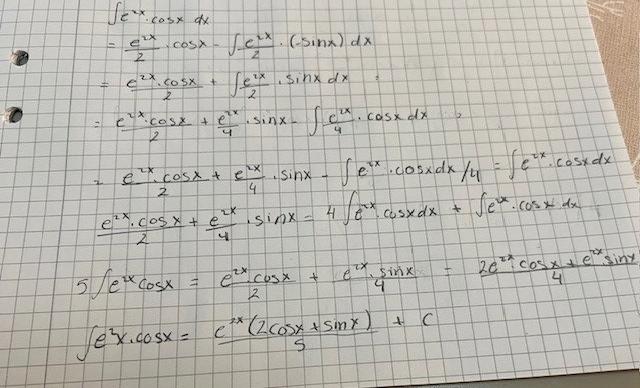 ∫e^2x · cosx dx
= e^2x/2 · cosx - ∫e^2x/2 · (-sinx) dx
= e^2x·cosx/2 + ∫e^2x/2 · sinx dx
= e^2x·cosx/2 + e^2x/4 · sinx - ∫e^2x/4 · cosx dx
= e^2x·cosx/2 + e^2x/4 · sinx - ∫e^2x · cosxdx/4 = ∫e^2x · cosxdx
e^2x·cosx/2 + e^2x/4 · sinx = 4∫e^2x · cosxdx + ∫e^2x · cosx dx
5∫e^2x cosx = e^2x·cosx/2 + e^2x·sinx/4 = 2e^2x·cosx + e^2x sinx/4
∫e^2x·cosx = e^2x(2cosx + sinx)/5 + C